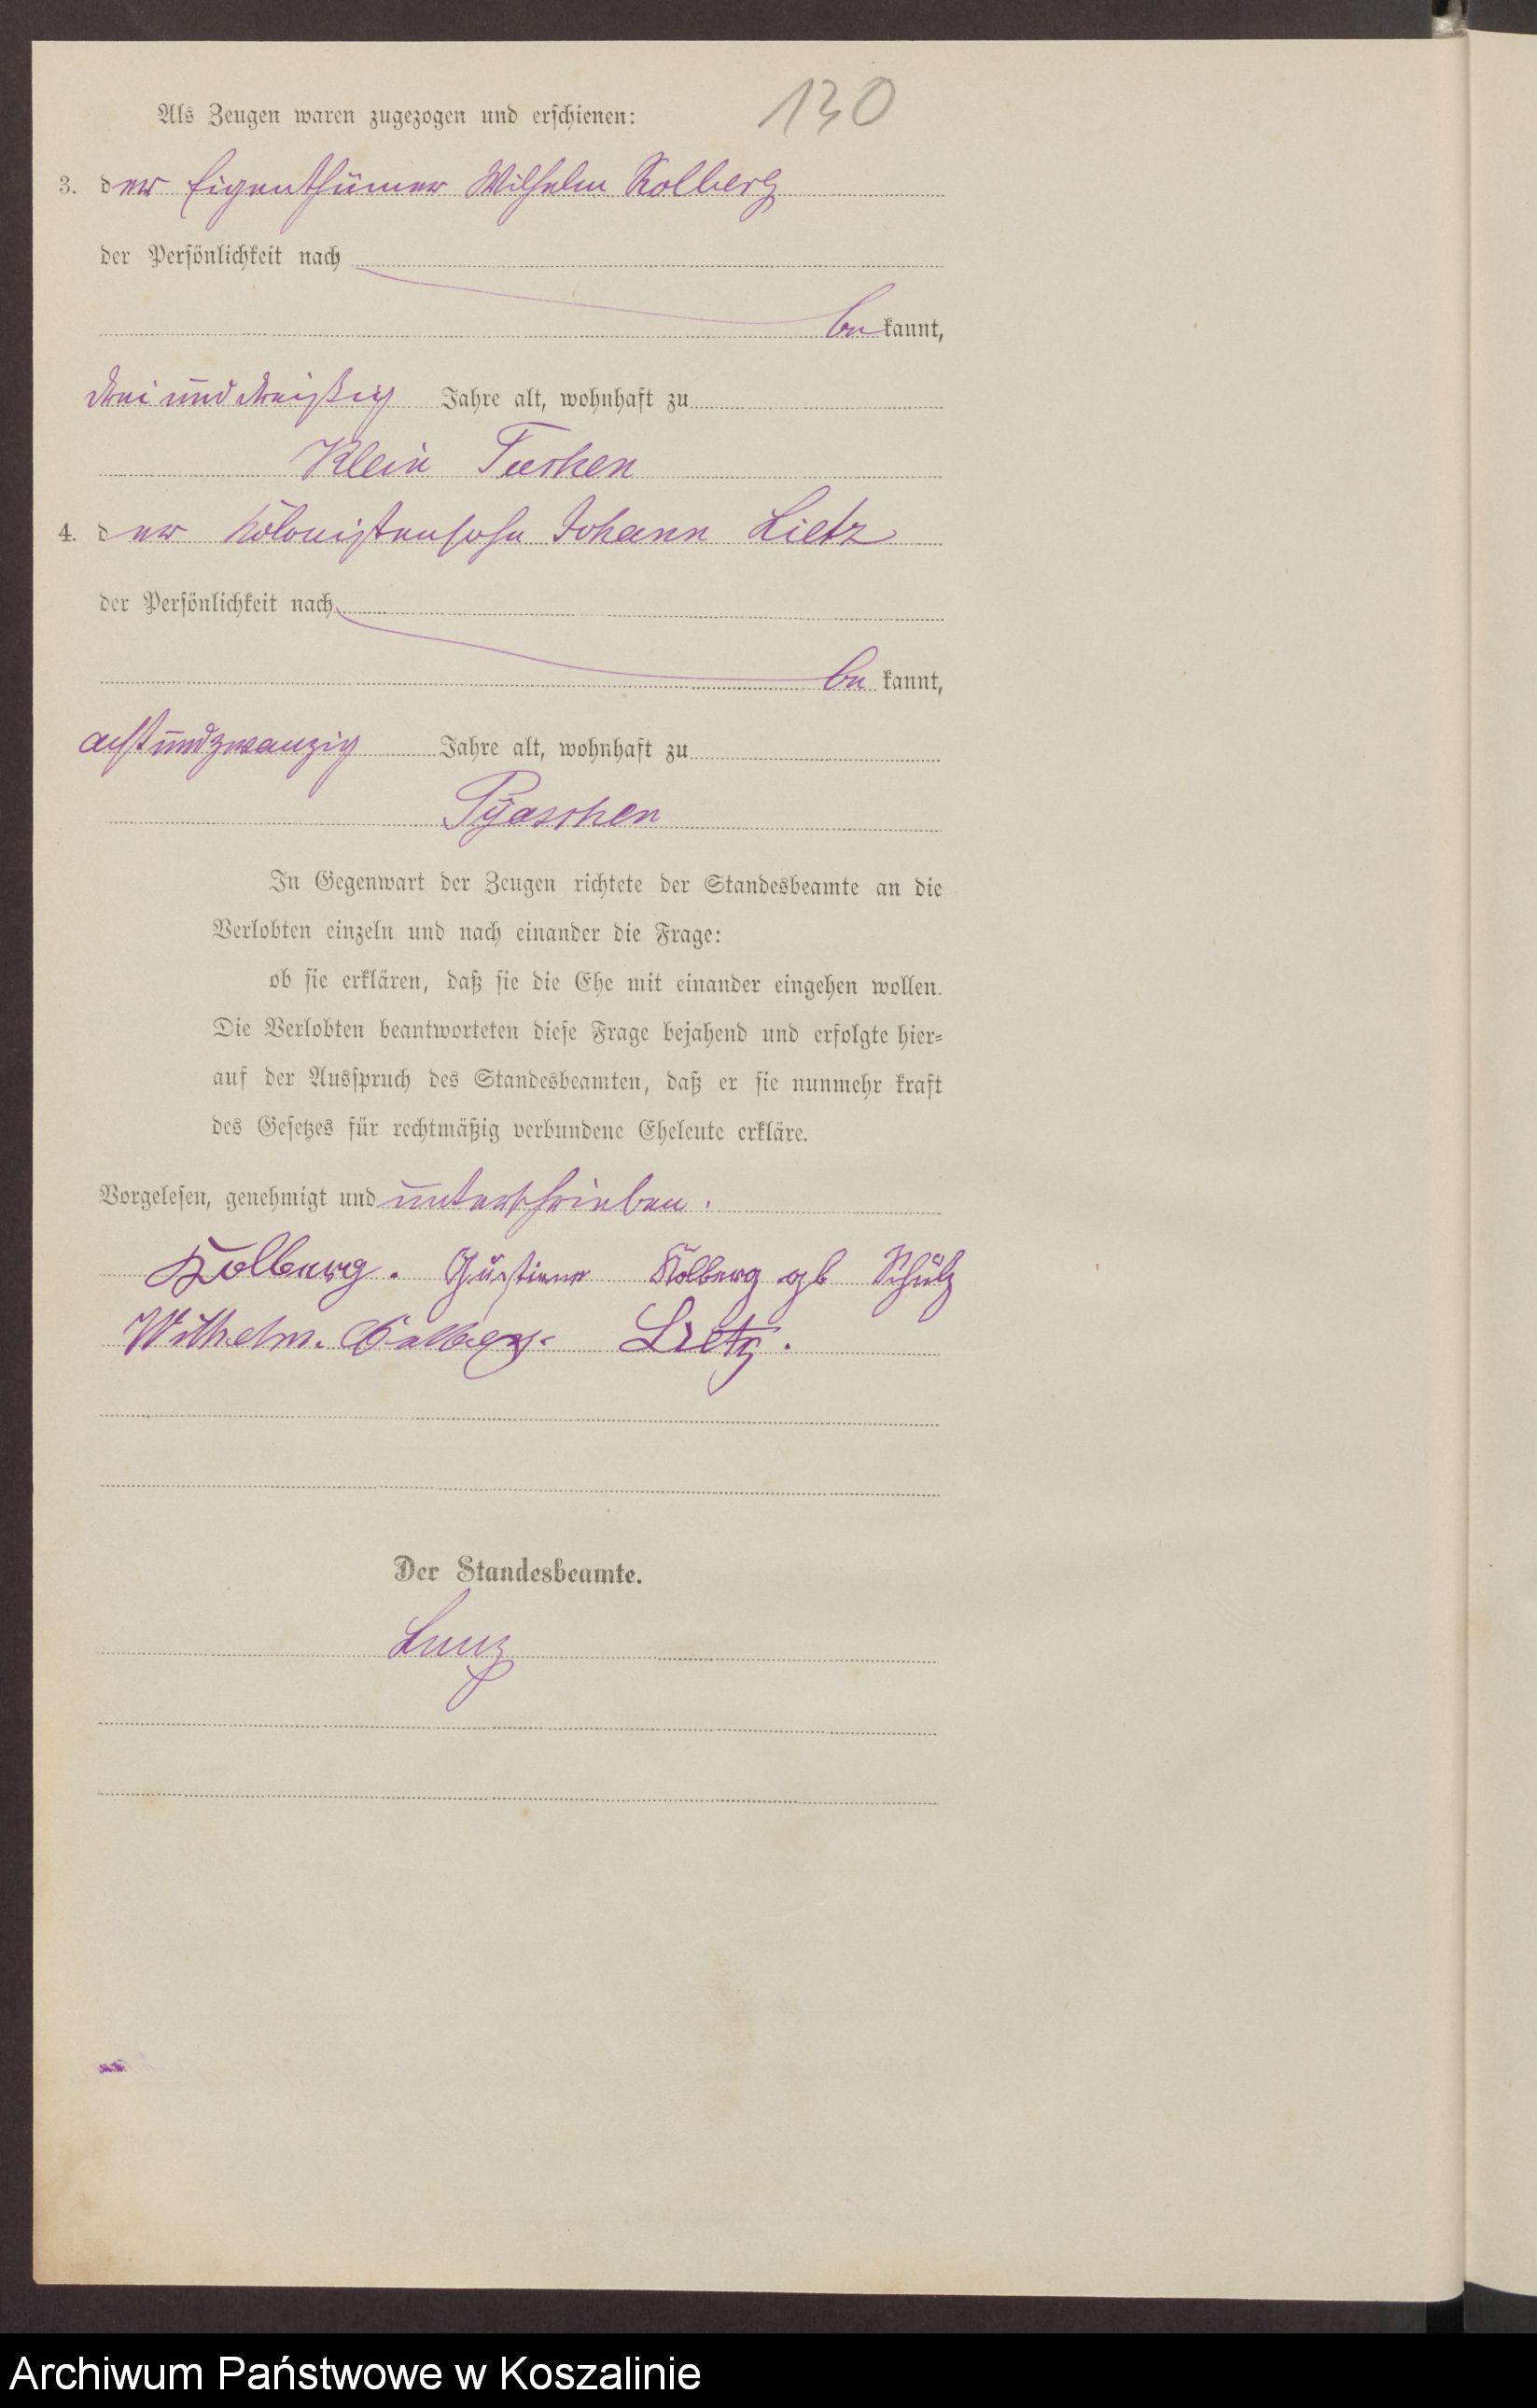 130
Als Zeugen waren zugezogen und erschienen:
3. der Eigenthümer Wilhelm Kolberg
der Persönlichkeit nach
be kannt,
dreiunddreißig Jahre alt, wohnhaft zu
Klein Tuchen
4. der Kolonistensohn Johann Lietz
der Persönlichkeit nach
be kannt,
achtundzwanzig Jahre alt, wohnhaft zu
Pyaschen
In Gegenwart der Zeugen richtete der Standesbeamte an die
Verlobten einzeln und nach einander die Frage:
ob sie erklären, daß sie die Ehe mit einander eingehen wollen.
Die Verlobten beantworteten diese Frage bejahend und erfolgte hier-
auf der Ausspruch des Standesbeamten, daß er sie nunmehr kraft
des Gesetzes für rechtmäßig verbundene Eheleute erkläre.
Vorgelesen, genehmigt und unterschrieben.
Kolberg. Kolberg gb Schulz
Wilhelm. Kolberg. Lietz.
Der Standesbeamte.
Archiwum Państwowe w Koszalinie